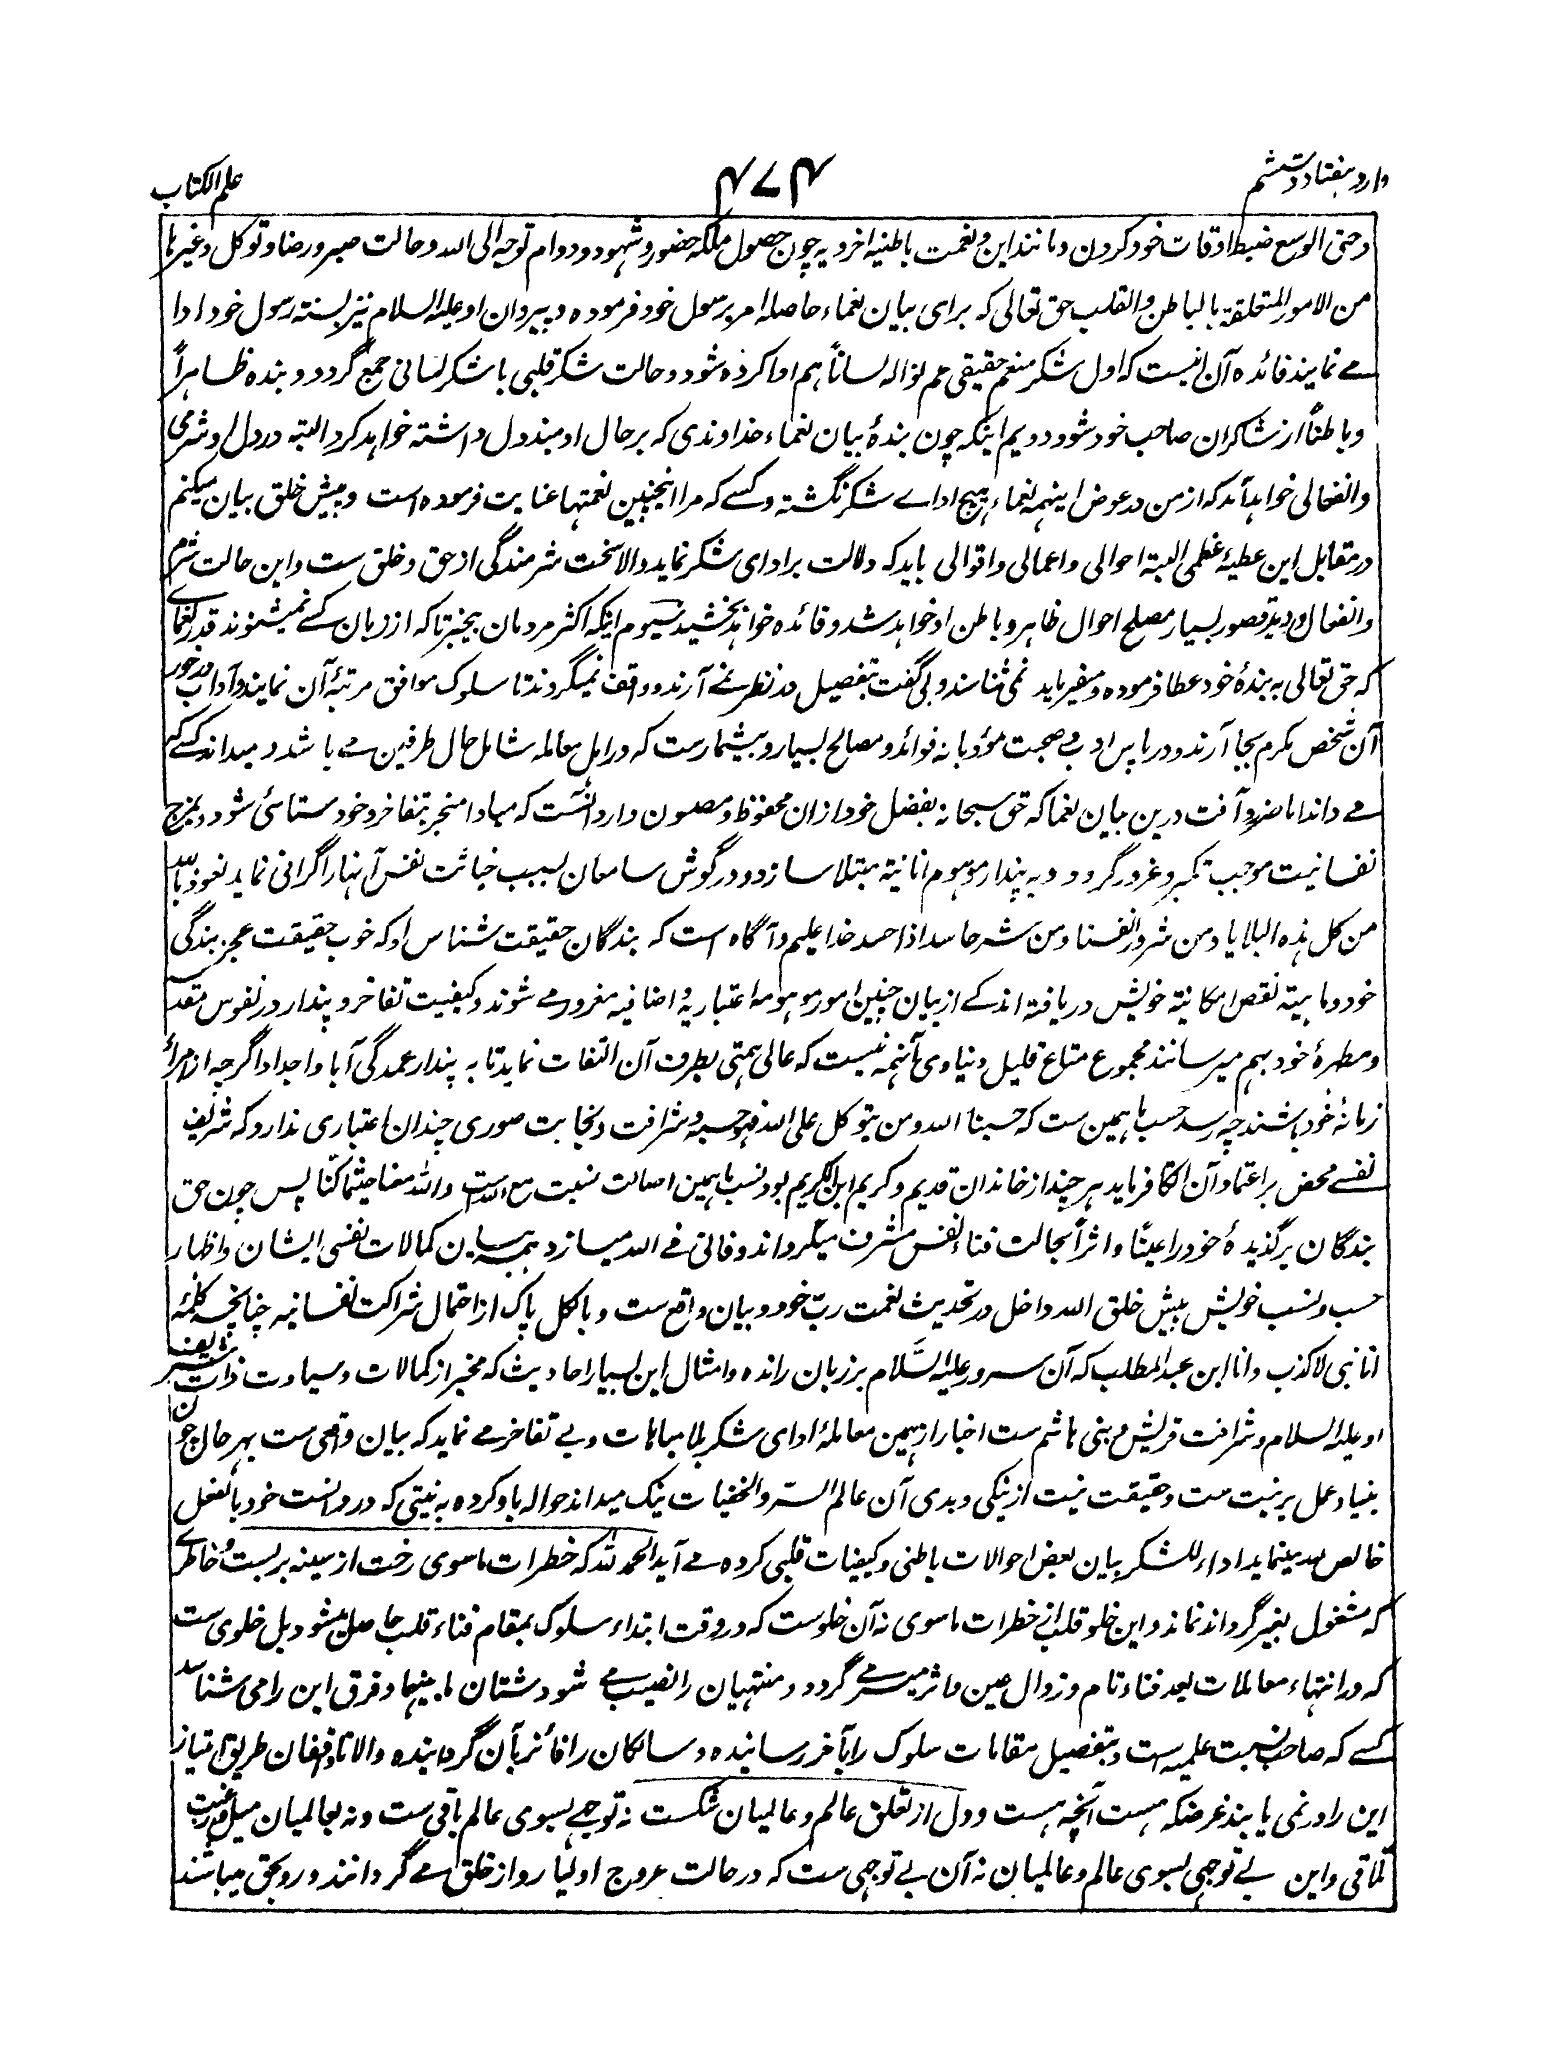 وارد هفتاد و ششم
۴۷۴
علم الکتاب
وحتی الوسع ضبط اوقات خود کردن و مانند این و نعمت باطنیه اخرویه چون حصول ملکه حضور و شهود و دوام توجه الی الله و حالت صبر و رضا و توکل و غیرها
من الامور المتعلقة بالباطن والقلب حق تعالی که برای بیان نعماء حاصله امر برسول خود فرموده و پیروان او علیه السلام نیز بسنته رسول خود ادا
مے نمایند فائده آن اینست که اول شکر منعم حقیقی عم نواله لساناً هم ادا کرده شود و حالت شکر قلبی با شکر لسانی جمع گردد و بنده ظاهراً
وباطناً از شاکران صاحب خود شود دویم اینکه چون بندهٔ بیان نعماء خداوندی که بر حال او مبذول داشته خواهد کرد البته در دل او شرمی
وانفعالی خواهد آمد که از من در عوض اینهمه نعماء هیچ اداے شکر نگشته و کسے که مرا اینچنین نعمتها عنایت فرموده است و پیش خلق بیان میکنم
در مقابل این عطیهٔ عظمی البته احوالی و اعمالی و اقوالی باید که دلالت بر ادای شکر نماید والا سخت شرمندگی از حق و خلق ست و این حالت شرم
وانفعال و دید قصور بسیار مصلح احوال ظاهر و باطن او خواهد شد و فائده خواهد بخشید سیوم اینکه اکثر مردمان بیخبر تا که از زبان کسے نمیشنوند قدر نعمائے
که حق تعالی به بندهٔ خود عطا فرموده و میفرماید نمی شناسند و بی گفت بتفصیل در نظر نمے آرند و واقف نمیگردند تا سلوک موافق مرتبهٔ آن نمایند و آداب درخور
آن شخص مکرم بجا آرند و در پاس ادب و صحبت مؤدبانه فوائد و مصالح بسیار و بیشمار ست که در اہل معامله شامل حال طرفین مے باشد و میداند کسے که
مے داند اما ضرر و آفت درین بیان نعما که حق سبحانه بفضل خود ازان محفوظ و مصون دارد آنست که مبادا منجر بتفاخر و خود ستائی شود و بمزج
نفسانیت موجب تکبر و غرور گردد و به پندار موهوم انانیته مبتلا سازد و در گوش سامعان بسبب خباثت نفس آنها را گرانی نماید نعوذ بالله
من کل هذه البلایا و من شرور انفسنا و من شر حاسد اذا حسد خدا علیم و آگاه است که بندگان حقیقت شناس او که خوب حقیقت عجز بندگی
خود و ماهیته نقص امکانیته خویش دریافته اند کے از بیان چنین امور موهومه اعتباریه و اضافیه مغرور مے شوند و کیفیت تفاخر و پندار در نفوس مقدسه
و مطهرهٔ خود بهم میرسانند مجموع متاع قلیل دنیاوی آنهمه نیست که عالی همتی بطرف آن التفات نماید تا به پندار عمدگی آبا و اجداد اگرچه از امرائے
زمانهٔ خود باشند چه رسد حسب ما همین ست که حسبنا الله و من یتوکل علی الله فهو حسبه و شرافت و نجابت صوری چندان اعتباری ندارد که شریف
نفسے محض بر اعتماد آن اکتفا فرماید هر چند از خاندان قدیم و کریم ابن الکریم بود نسب ما همین اصالت نسبت مع الله ست والله معنا حیثما کنّا پس چون حق
بندگان برگزیدهٔ خود را عیناً و اثراً بحالت فناء نفس مشرف میگرداند و فانی فے الله میسازد همه بیان کمالات نفسی ایشان و اظهار
حسب و نسب خویش پیش خلق الله داخل در تحدیث نعمت ربّ خود و بیان واقع ست و بالکل پاک از احتمال شراکت نفسانیه چنانچه کلمهٔ
انا نبی لا کذب و انا ابن عبد المطلب که آن سرور علیه السّلام بر زبان رانده و امثال این بسیار احادیث که مخبر از کمالات و سیادت ذات شریفه
او علیه السلام و شرافت قریش و بنی هاشم ست اخبار از همین معاملهٔ ادای شکر بلا مباهات و بے تفاخر مے نماید که بیان واقعی ست بهر حال چون
بنیاد عمل بر نیت ست و حقیقت نیت از نیکی و بدی آن عالم السّر والخفیات نیک میداند حواله باو کرده به نیتی که در دانست خود بالفعل
خالص می بینماید اداء للشکر بیان بعض احوالات باطنی و کیفیات قلبی کرده مے آید الحمد لله که خطرات ماسوی رخت از سینه بربست و خاطرے
که مشغول بغیر گرداند نماند و این خلو قلب از خطرات ماسوی نه آن خلوست که در وقت ابتداء سلوک بمقام فناء قلب حاصل میشود بل خلوی ست
که در انتهاء معاملات بعد فناء تام و زوال عین و اثر میسر مے گردد و منتهیان را نصیب مے شود شتان ما بینهما و فرق این را می شناسد
کسے که صاحب نسبت علمیه ست و بتفصیل مقامات سلوک را بآخر رسانیده و سالکان را فائز بآن گردانیده والا ناواقفان طریق امتیاز
این را در نمی یابند غرضکه هست آنچه هست و دل از تعلق عالم و عالمیان شکست نه توجهے بسوی عالم باقی ست و نه بعالمیان میل و رغبت
تلاقی و این بے توجهی بسوی عالم و عالمیان نه آن بے توجهی ست که در حالت عروج اولیا رو از خلق مے گردانند و رو بحق میباشند